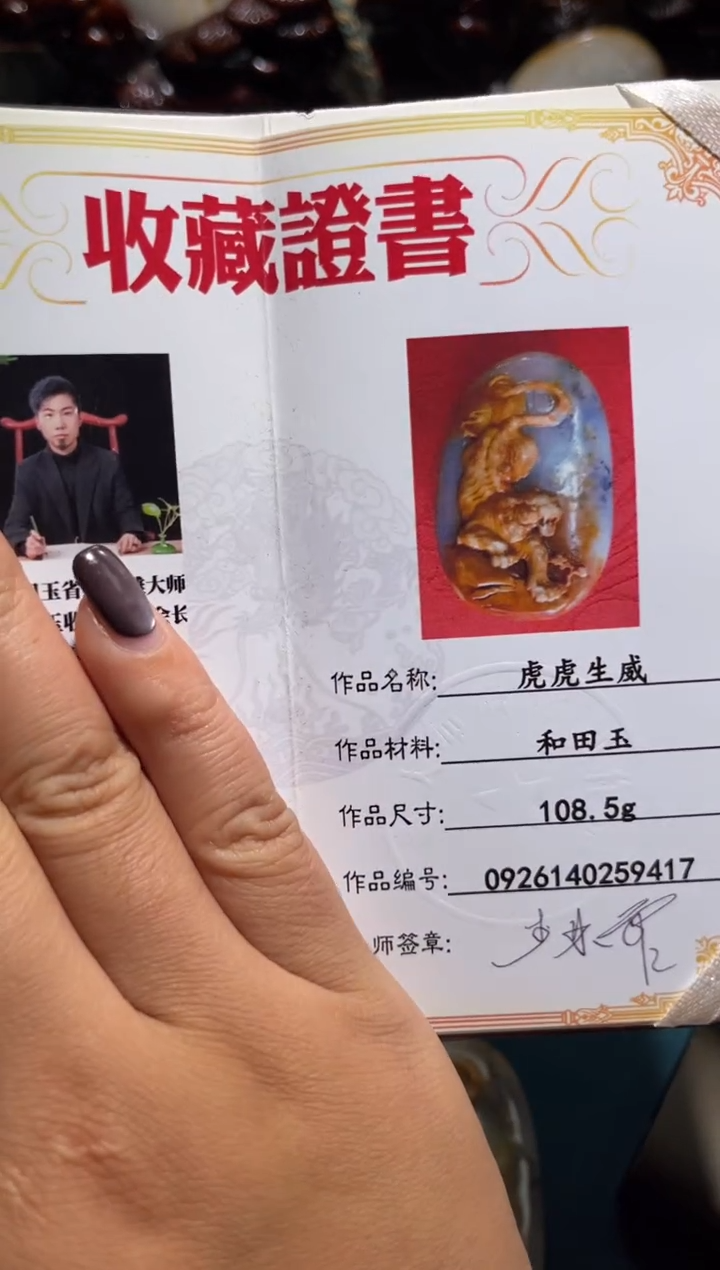 收藏證書
玉省 大师
玉收 会长
作品名称: 虎虎生威
作品材料: 和田玉
作品尺寸: 108.5g
作品编号: 0926140259417
师签章: